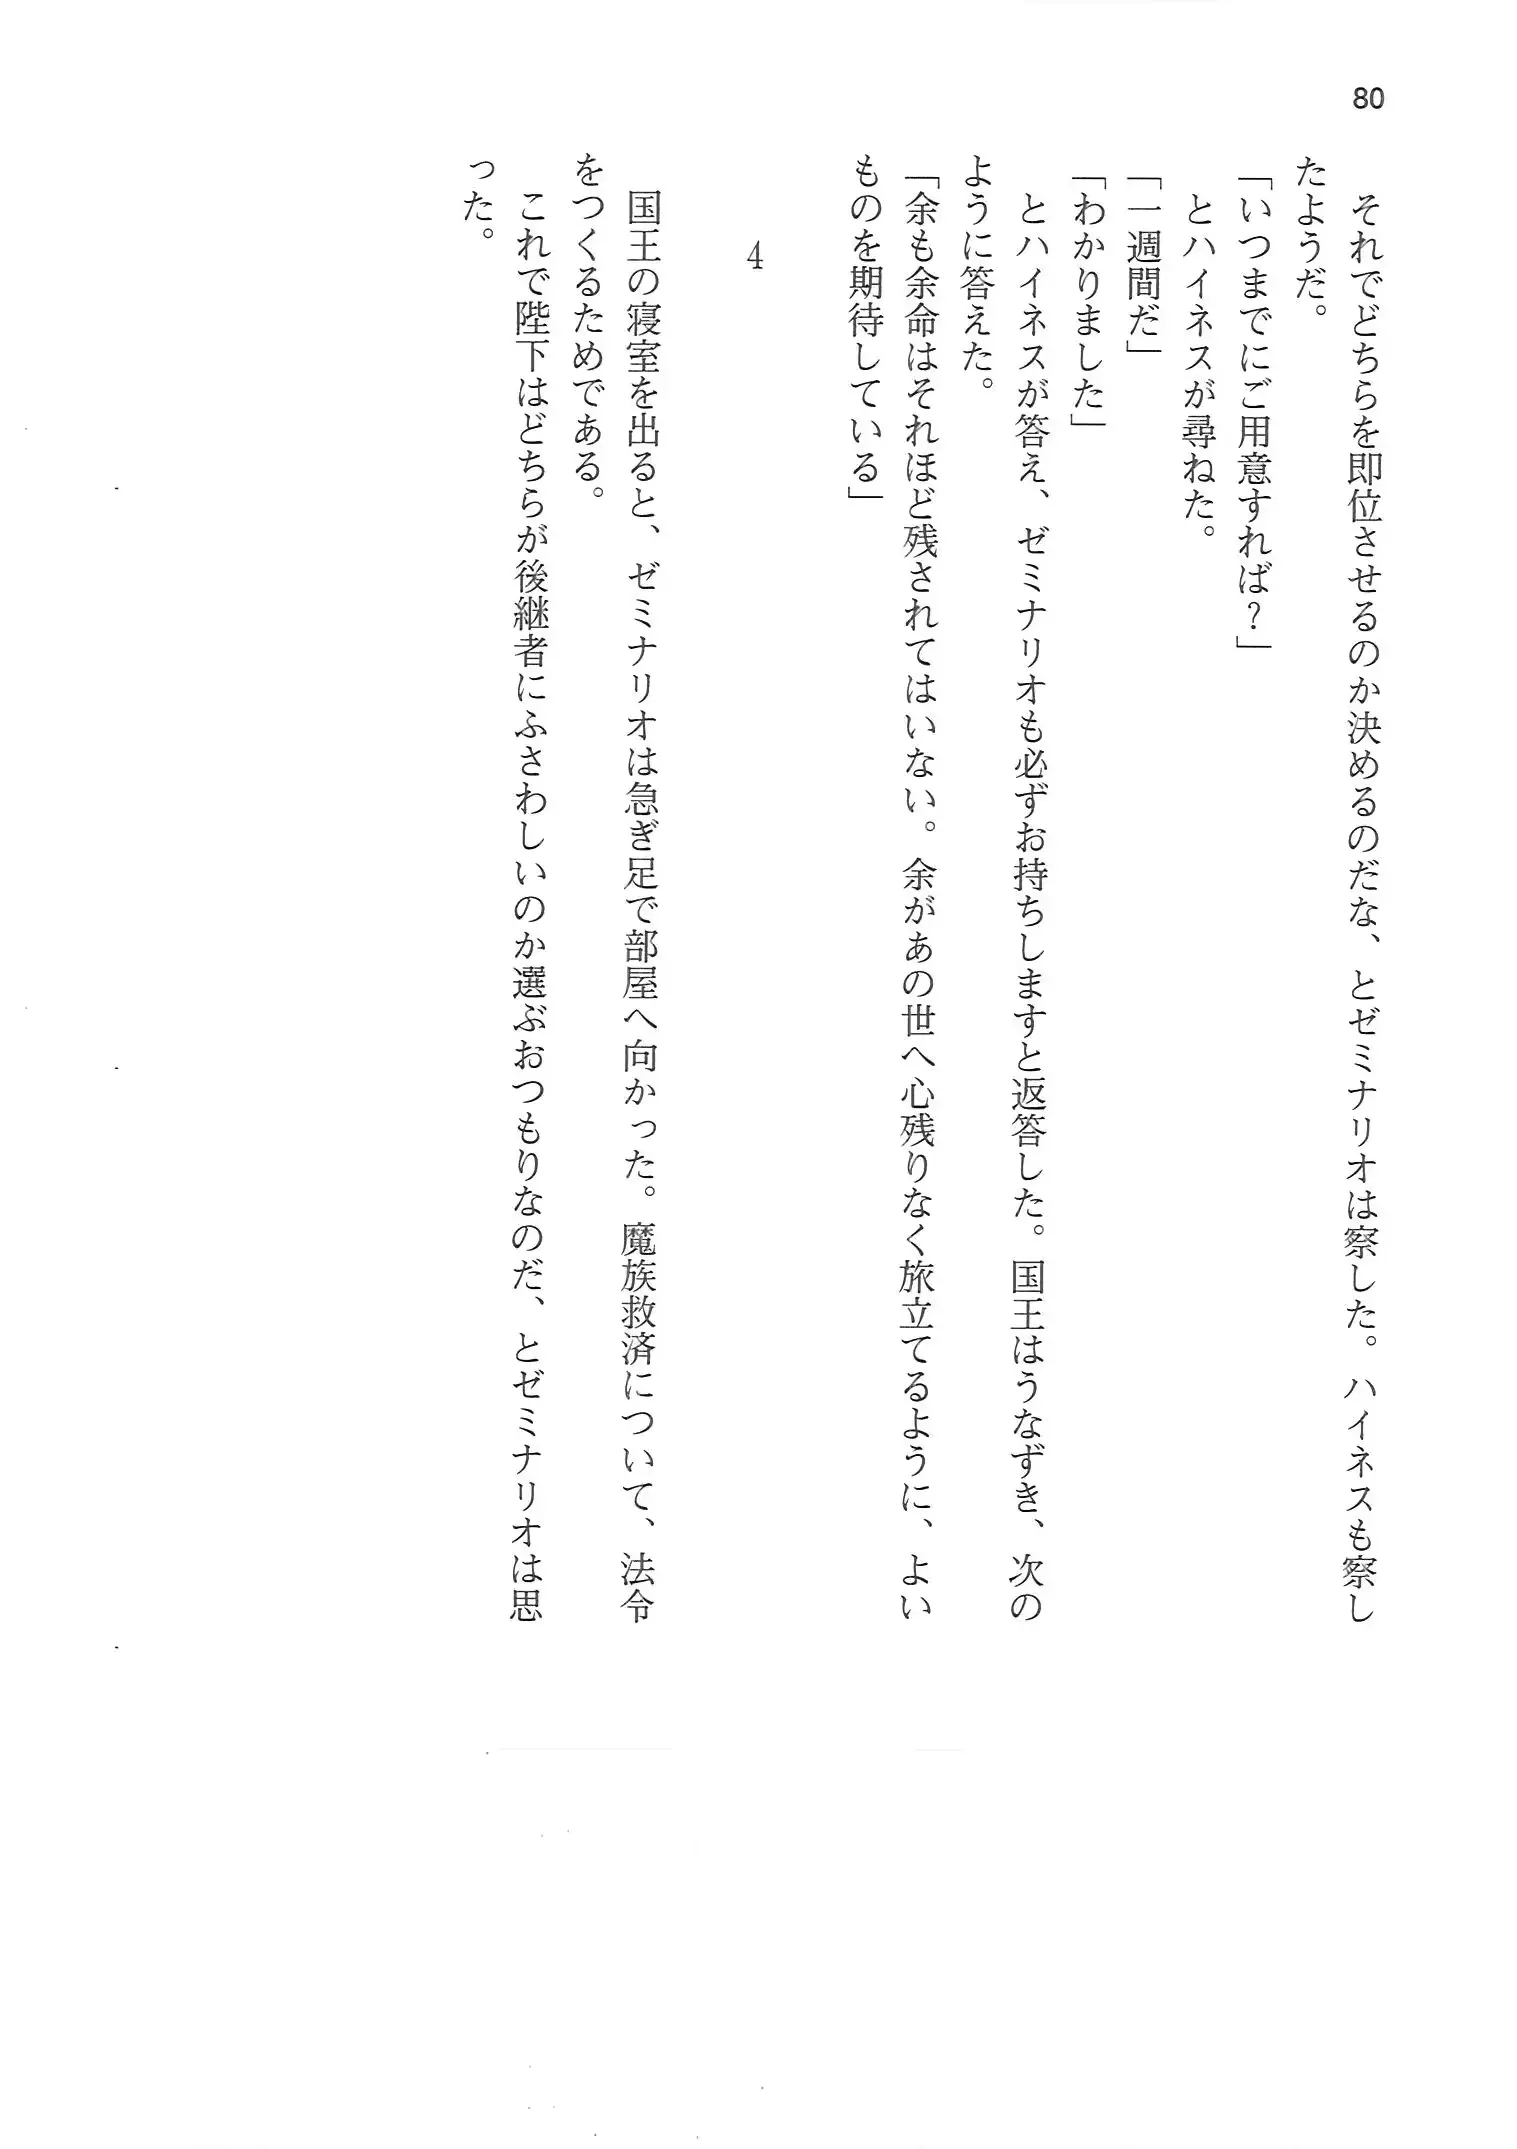 80
　それでどちらを即位させるのか決めるのだな、とゼミナリオは察した。ハイネスも察し
たようだ。
「いつまでにご用意すれば？」
　とハイネスが尋ねた。
「一週間だ」
「わかりました」
　とハイネスが答え、ゼミナリオも必ずお持ちしますと返答した。国王はうなずき、次の
ように答えた。
「余も余命はそれほど残されてはいない。余があの世へ心残りなく旅立てるように、よい
ものを期待している」
4
　国王の寝室を出ると、ゼミナリオは急ぎ足で部屋へ向かった。魔族救済について、法令
をつくるためである。
　これで陛下はどちらが後継者にふさわしいのか選ぶおつもりなのだ、とゼミナリオは思
った。